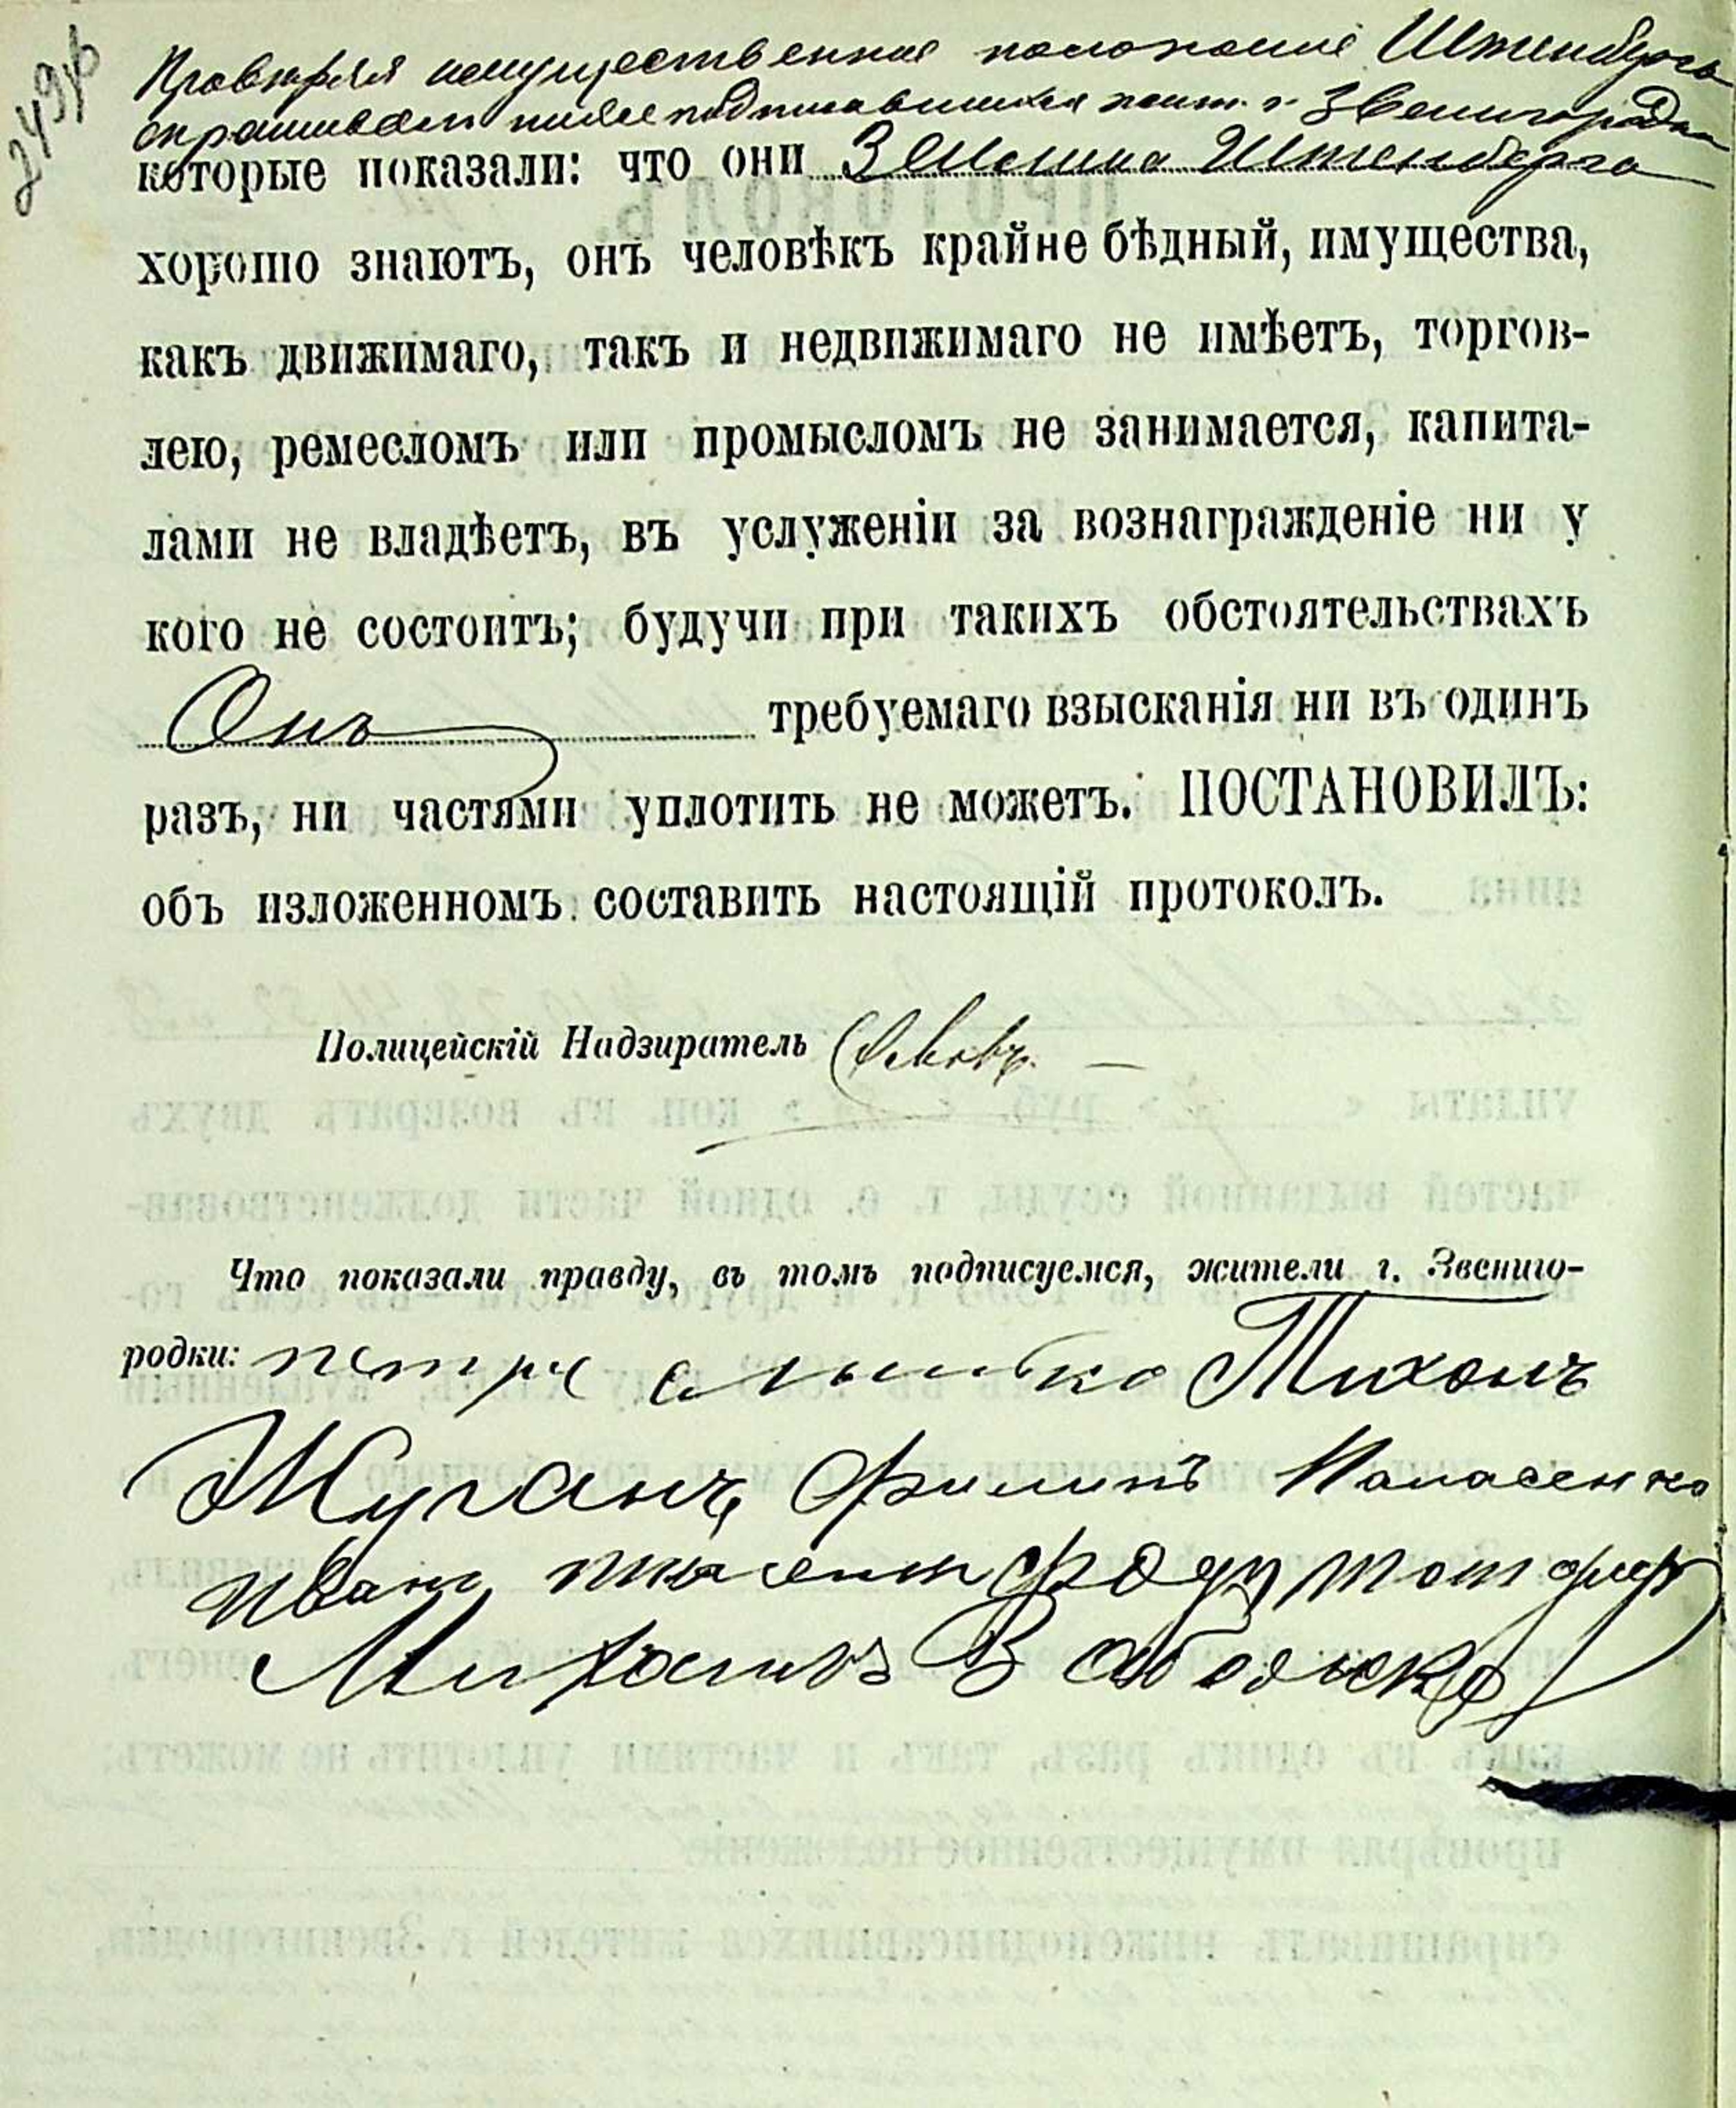 249об
Провѣряя имущественное положеніе Штенберга
спрашивалъ нижеподписавшихся жит. г. Звенигородки
которые показали: что они Зельмана Штенберга
хорошо знаютъ, онъ человѣкъ крайне бѣдный, имущества,
какъ движимаго, такъ и недвижимаго не имѣетъ, торгов-
лею, ремесломъ или промысломъ не занимается, капита-
лами не владѣетъ, въ услуженіи за вознагражденіе ни у
кого не состоитъ; будучи при такихъ обстоятельствахъ
Онъ требуемаго взысканія ни въ одинъ
разъ, ни частями уплотить не можетъ. ПОСТАНОВИЛЪ:
объ изложенномъ составить настоящій протоколъ.
Полицейскій Надзиратель
Что показали правду, въ томъ подписуемся, жители г. Звениго-
родки: петро Тихонъ
Жуганъ, Филипъ Панасенко
иванъ
Михаилъ